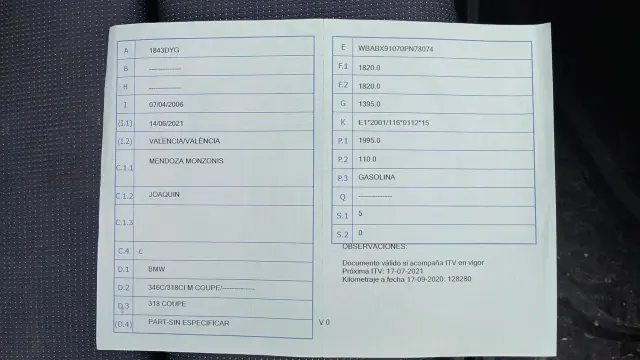 A 1843DYG
B --------------
H --------------
I 07/04/2006
(I.1) 14/06/2021
(I.2) VALENCIA/VALÈNCIA
C.1.1 MENDOZA MONZONIS
C.1.2 JOAQUIN
C.1.3
C.4 c
D.1 BMW
D.2 346C/318CI M COUPE/--------------
D.3 318 COUPE
(D.4) PART-SIN ESPECIFICAR
E WBABX91070PN78074
F.1 1820.0
F.2 1820.0
G 1395.0
K E1*2001/116*0112*15
P.1 1995.0
P.2 110.0
P.3 GASOLINA
Q --------------
S.1 5
S.2 0
OBSERVACIONES:
Documento válido si acompaña ITV en vigor
Próxima ITV: 17-07-2021
Kilometraje a fecha 17-09-2020: 128280
V 0